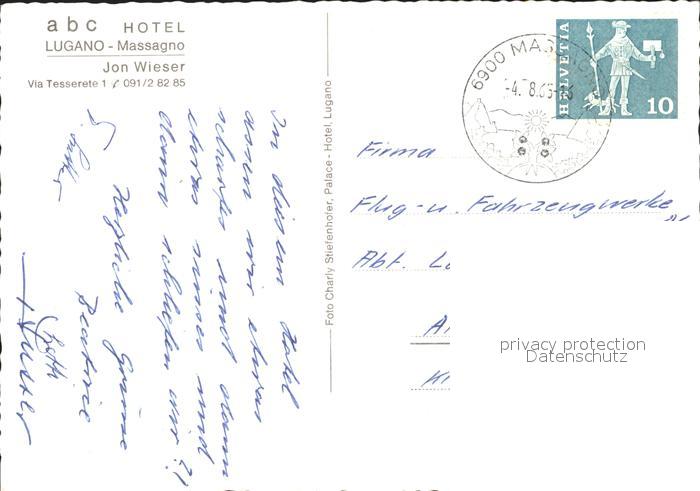 abc HOTEL
LUGANO - Massagno
Jon Wieser
Via Tesserete 1 091/2 82 85
In diesem Hotel
essen wir etwas
scharfes und dann
etwas süsses und
dann schlafen wir?!
Herzliche Grüsse
Beatrice
Foto Charly Stiefenhofer, Palace-Hotel, Lugano
6900 MASSAGNO
-4.8.65-
HELVETIA
10
Firma
Flug- u. Fahrzeugwerke
Abt.
privacy protection
Datenschutz